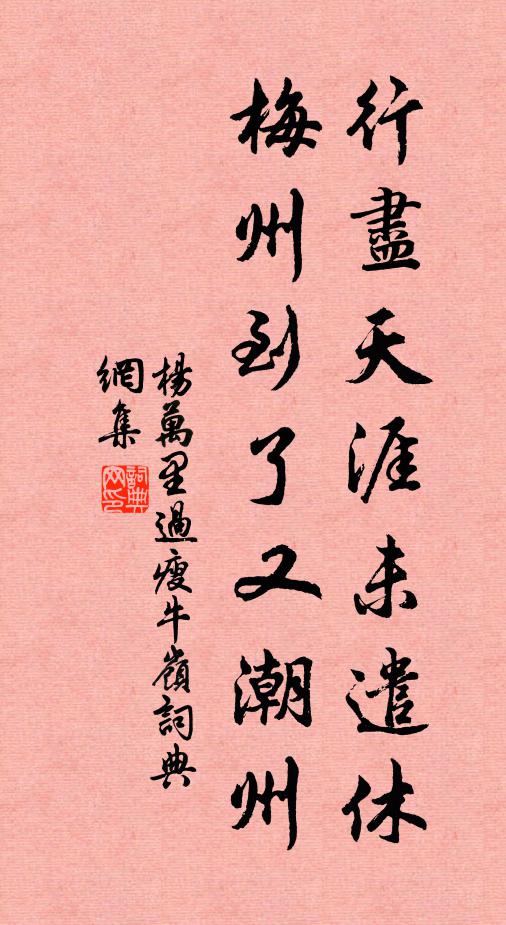 行盡天涯未遣休
梅州到了又潮州
楊萬里過瘦牛嶺詞典
網集
詞典網印